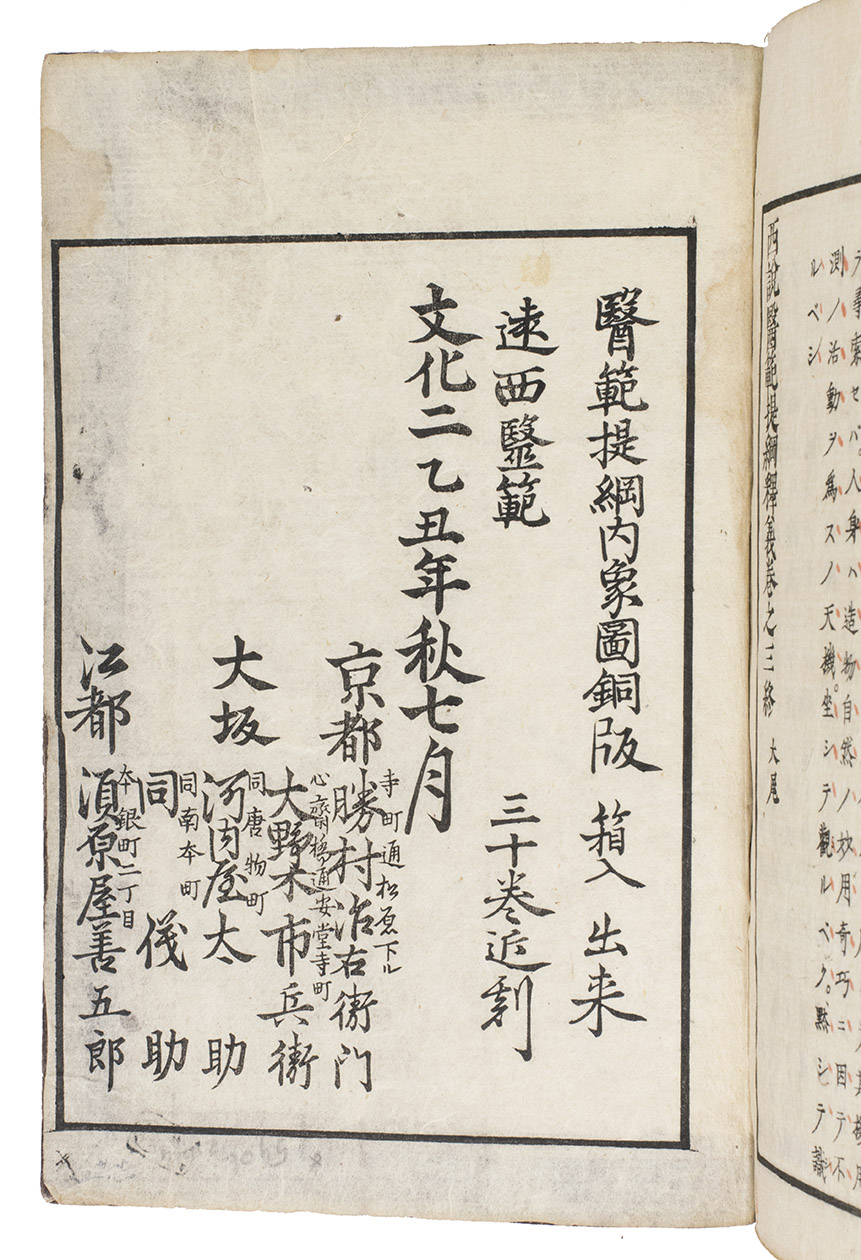 ラ尋索セバ。人身ハ造物自然ノ玅用奇巧ニ因テ不
測ノ活動ヲ爲スノ天機。坐シテ觀ルベク。黙シテ識
ルベシ
西說醫範提綱釋義卷之三終 大尾
醫範提綱内象圖銅版 箱入 出来
遠西醫範 三十巻近刻
文化二乙丑年秋七月
寺町通松原下ル
京都 勝村治右衛門
心齋橋通安堂寺町
大野木市兵衛
同唐物町
大坂 河内屋太助
同南本町
同 儀助
本銀町二丁目
江都 須原屋善五郎